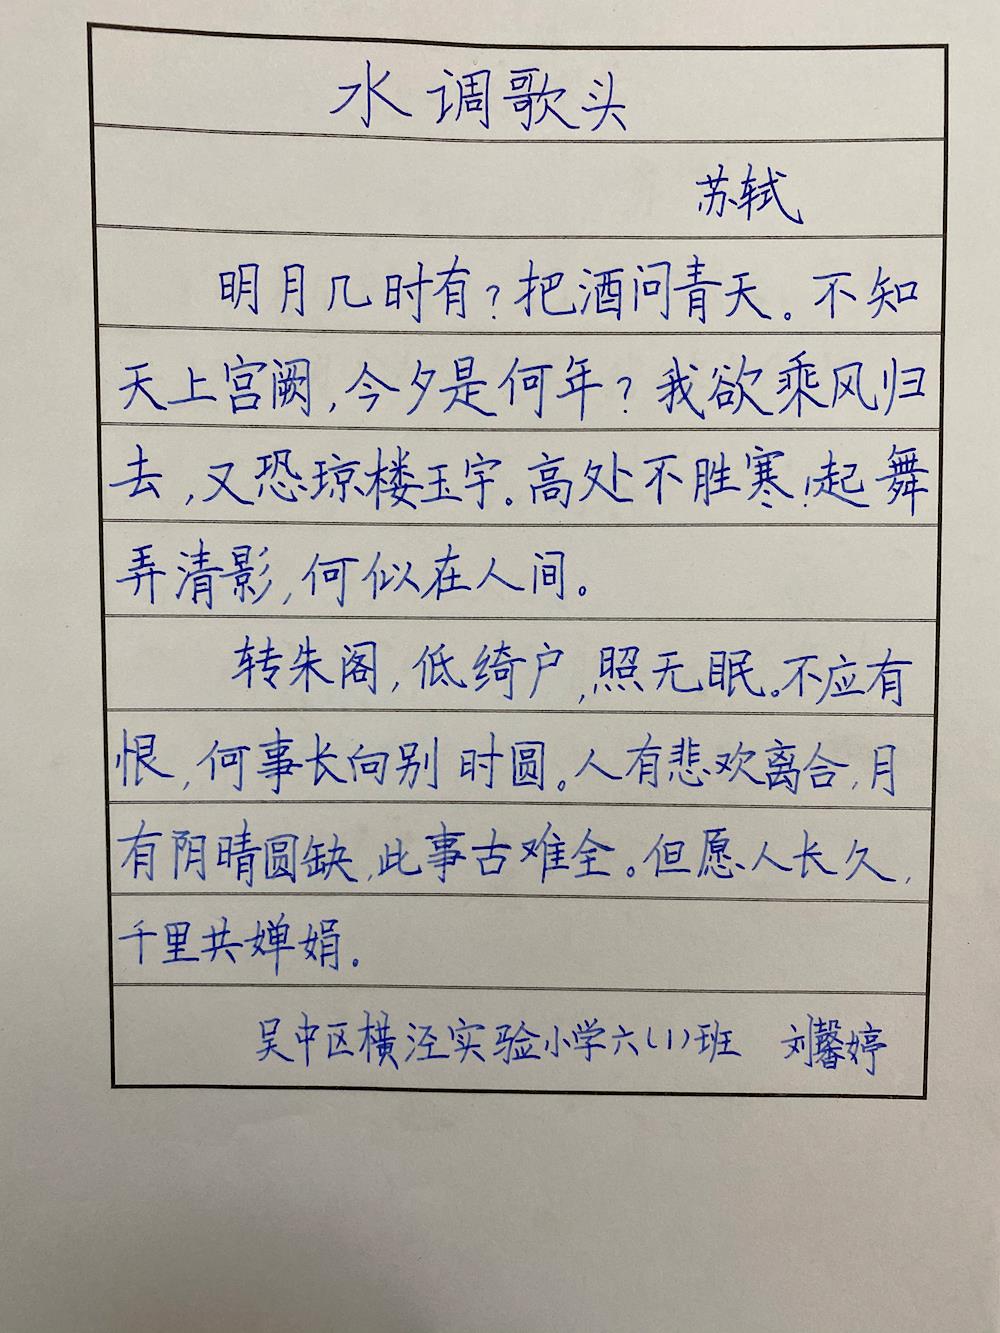 水调歌头
苏轼
明月几时有?把酒问青天。不知
天上宫阙,今夕是何年?我欲乘风归
去,又恐琼楼玉宇。高处不胜寒,起舞
弄清影,何似在人间。
转朱阁,低绮户,照无眠。不应有
恨,何事长向别时圆。人有悲欢离合,月
有阴晴圆缺,此事古难全。但愿人长久,
千里共婵娟。
吴中区横泾实验小学六(1)班 刘馨婷